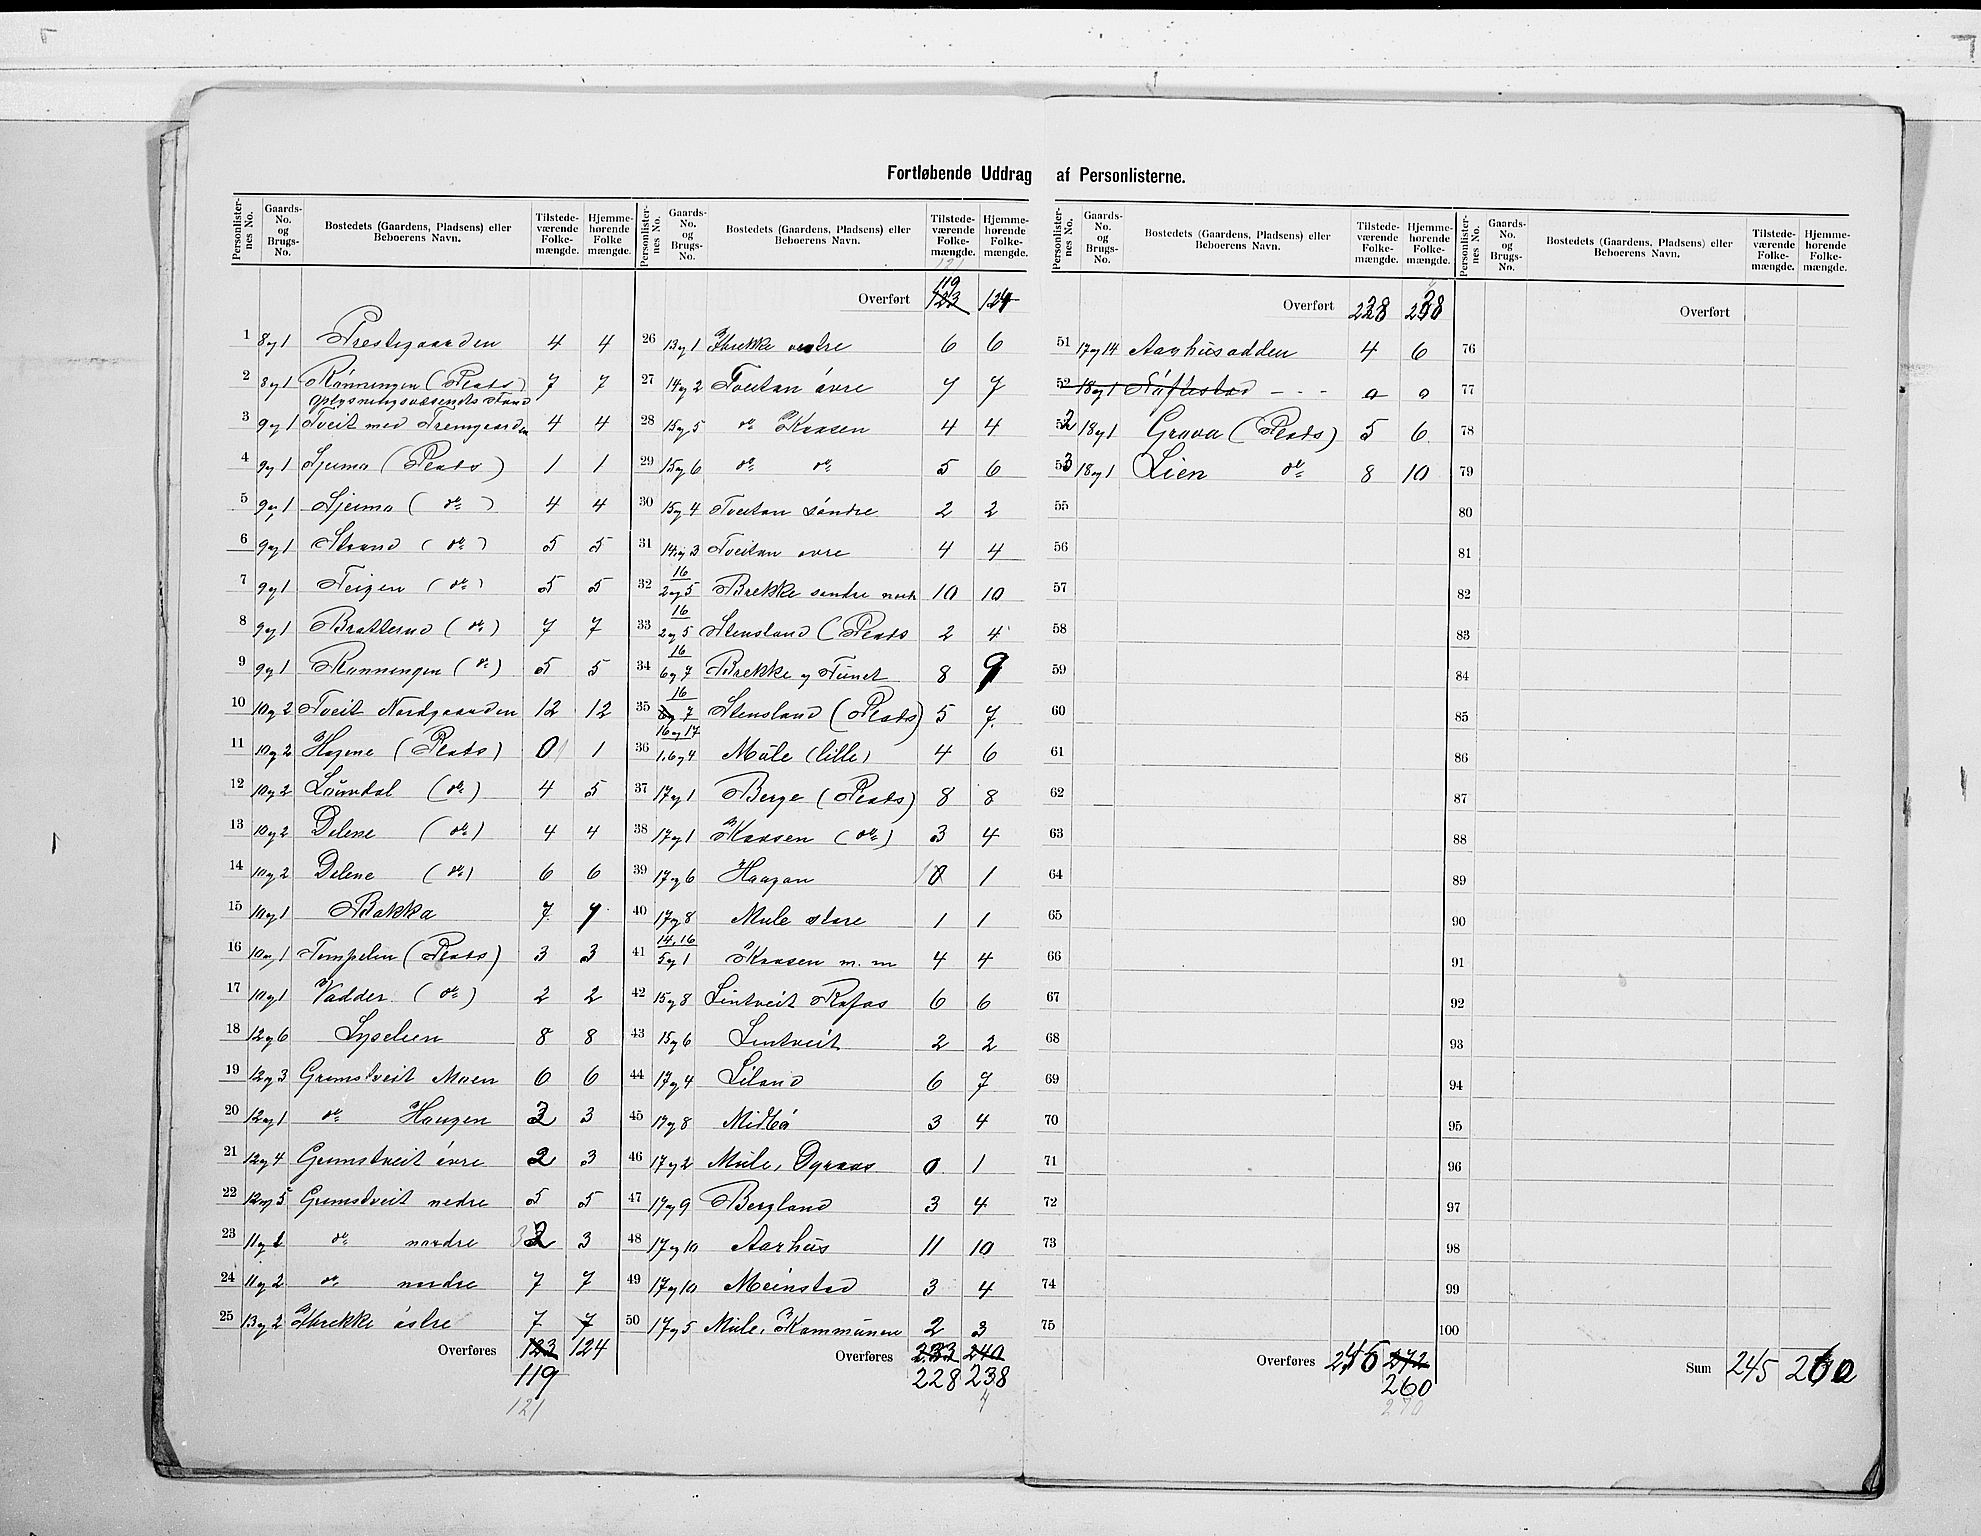 Fortløbende Uddrag af Personlisterne.
Personlisternes No. Gaards-No. og Brugs-No. Bostedets (Gaardens, Pladsens) eller Beboerens Navn. Tilstedeværende Folkemængde. Hjemmehørende Folkemængde.
1 8 og 1 Prestegaarden 4 4
2 8 og 1 Rönningen (Plads) 7 7
Oplysningsvæsenets Fond
3 9 og 1 Tveit med Fremgaarden 4 4
4 9 og 1 Sjeimo (Plads) 1 1
5 9 og 1 Sjeimo (do) 4 4
6 9 og 1 Strand (do) 5 5
7 9 og 1 Teigen (do) 5 5
8 9 og 1 Bratterud (do) 7 7
9 9 og 1 Rönningen (do) 5 5
10 10 og 2 Tveit Nordgaarden 12 12
11 10 og 2 Hagene (Plads) 0 1
12 10 og 2 (do) 4 5
13 10 og 2 Delene (do) 4 4
14 10 og 2 Delene (do) 6 6
15 10 og 1 Bakka 7 7
16 10 og 1 Tempelen (Plads) 3 3
17 10 og 1 Vadder (do) 2 2
18 12 og 6 Lyselien 8 8
19 12 og 3 Grimstveit Moen 6 6
20 12 og 1 do Haugen 3
21 12 og 4 Grimstveit övre 2 3
22 12 og 5 Grimstveit nedre 5 5
23 11 og 1 do nordre 2 3
24 11 og 2 do nordre 7 7
25 13 og 2 Kvrekke östre 7 7
Overføres 123 124
119
121
Personlisternes No. Gaards-No. og Brugs-No. Bostedets (Gaardens, Pladsens) eller Beboerens Navn. Tilstedeværende Folkemængde. Hjemmehørende Folkemængde.
121
119
Overført 123 124
26 13 og 1 vestre 6 6
27 14 og 2 Tveitan övre 7 7
28 15 og 5 do Kaasen 4 4
29 15 og 6 do do 5 6
30 15 og 4 Tveitan söndre 2 2
31 14 og 3 Tveitan övre 4 4
32 16 2 og 5 Brekke söndre 10 10
33 16 2 og 5 Stensland (Plads 2 4
34 16 6 og 7 Brekke og Tunet 8 9
35 16 7 Stensland (Plads) 5 7
36 16 og 17 1.6 og 4 Mule (lille) 4 6
37 17 og 1 Berge (Plads) 8 8
38 17 og 1 Kaasen (do) 3 4
39 17 og 6 Haugan 0 1
40 17 og 8 Mule store 1 1
41 14, 16 5 og 1 Kaasen m. m 4 4
42 15 og 8 Lintveit Rafas 6 6
43 15 og 6 Lintveit 2 2
44 17 og 4 Liland 6 7
45 17 og 8 Midbö 3 4
46 17 og 2 Mule, Dyraas 0 1
47 17 og 9 Bergland 3 4
48 17 og 10 Aarhus 11 10
49 17 og 10 Meinstad 3 4
50 17 og 5 Mule, Kommunen 2 3
Overføres 233 240
228 238
4
Personlisternes No. Gaards-No. og Brugs-No. Bostedets (Gaardens, Pladsens) eller Beboerens Navn. Tilstedeværende Folkemængde. Hjemmehørende Folkemængde.
Overført 228 238
51 17 og 14 Aarhusodden 4 6
52 18 og 1 - - - 0 0
52 18 og 1 Grava (Plads) 5 6
53 18 og 1 Lien do 8 10
55
56
57
58
59
60
61
62
63
64
65
66
67
68
69
70
71
72
73
74
75
Overføres 245 272
260
270
Personlisternes No. Gaards-No. og Brugs-No. Bostedets (Gaardens, Pladsens) eller Beboerens Navn. Tilstedeværende Folkemængde. Hjemmehørende Folkemængde.
Overført
76
77
78
79
80
81
82
83
84
85
86
87
88
89
90
91
92
93
94
95
96
97
98
99
100
Sum 245 260